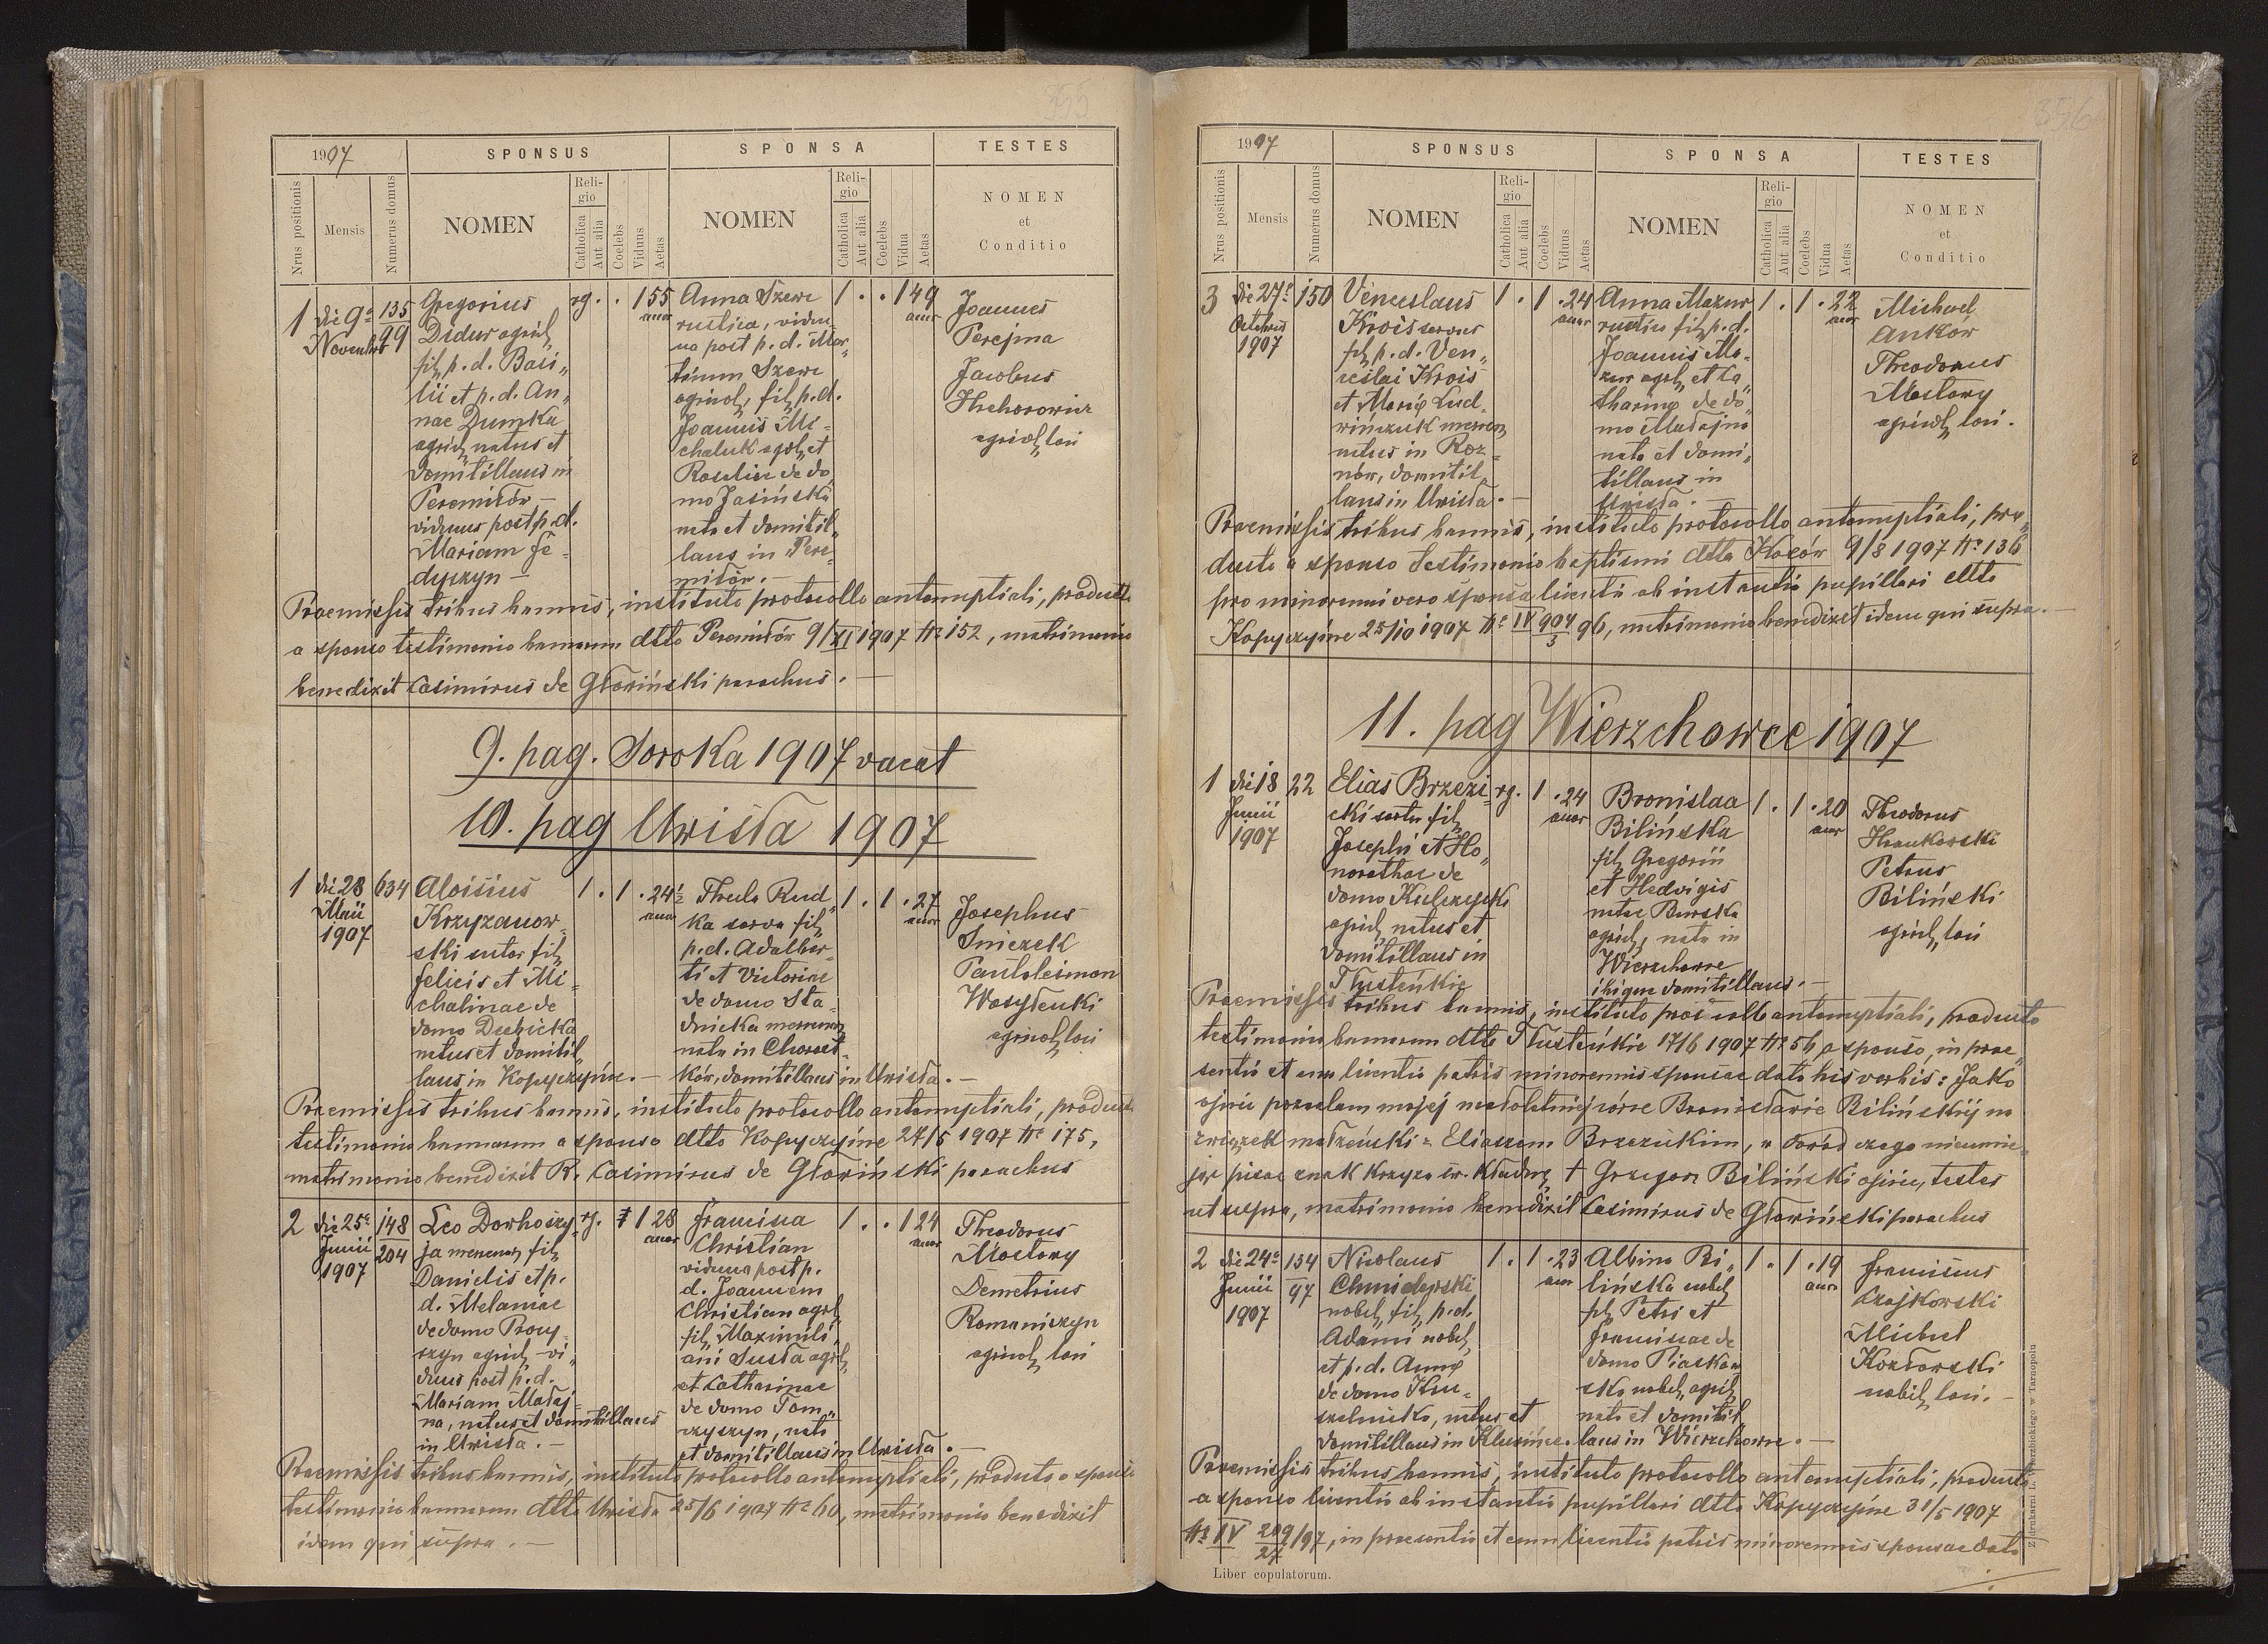 355
1907
SPONSUS
SPONSA
TESTES
Nrus positionis
Mensis
Numerus domus
NOMEN
Religio
Catholica
Aut alia
Coelebs
Viduus
Aetas
NOMEN
Religio
Catholica
Aut alia
Coelebs
Vidua
Aetas
NOMEN
et
Conditio
1 die 9a 135 99
Novembr
Gregorius
Didur agricol
fil p. d. Basi„
lii et p. d. An„
nae Dumka
agricol natus et
domitillans in
Peremiłów –
viduus post p. d.
Mariam Fe-
dyczyn –
rg. . . 1 55
annor
Anna Szewc
rustica, vidu„
ua post p. d. Mar„
tinum Szewc
agricol, fil p. d.
Joannis Mi-
chaluk agol, et
Rosaliae de do
mo Jasińska
nata et domitil„
lans in Pere„
miłów. –
1 . . 1 49
annor
Joannes
Perejma
Jacobus
Hrehorowicz
agricol, lori
Praemissis tribus bannis, instituto protocollo antenuptiali, producto
a sponso testimonio bannorum dtto Peremiłów 9/XI 1907 No 152, matrimonio
benedixit Casimirus de Głowiński parochus. –
9. pag. Soroka 1907 vacat
10. pag Uwisła 1907
1 die 28
Maii
1907
634
Aloisius
Krzyzanow-
ski sutor fil
Felicis et Mi-
chalinae de
domo Dedzicka
natus et domitil,
lans in Kopyczyńce. –
1 . 1 . 24½
annor
Thecla Rud„
ka serva fil
p. d. Adalber-
ti et Victoriae
de domo Sta-
dnicka mercenar
nata in Chorost-
ków, domitillans in Uwisła. –
1 . 1 . 27
annor
Josephus
Sniezek
Pantaleimon
Wasyleńki
agricol, lori
Praemissis tribus bannis, instituto protocollo antenuptiali, producto
testimonio bannorum a sponso dtto Kopyczyńce 27/5 1907 No 175,
matrimonio benedixit R. Casimirus de Głowiński parochus
2 die 25a
Junii
1907
148
204
Leo Dorhoszy„
ja mercenar, fil
Danielis et p.
d. Melaniae
de domo Procy-
szyn agricol, vi„
duus post p. d.
Mariam Małaj-
na, natus et domitillans
in Uwisła. –
rg. 1 28
annor
Francisca
Christian
vidua post p.
d. Joannem
Christian agrl,
fil, Maximili„
ani Susła agrl,
et Catharinae
de domo Tom„
czyszyn, nata
et domitillans in Uwisła. –
1 . . 1 24
annor
Theodorus
Mostowy
Demetrius
Romaniszyn
agricol, lori
Praemissis tribus bannis, instituto protocollo antenuptiali, producto a sponso
testimonio bannorum dtto Uwisła 25/6 1907 No 60, matrimonio benedixit
idem qui supra. –
356
1907
SPONSUS
SPONSA
TESTES
Nrus positionis
Mensis
Numerus domus
NOMEN
Religio
Catholica
Aut alia
Coelebs
Viduus
Aetas
NOMEN
Religio
Catholica
Aut alia
Coelebs
Vidua
Aetas
NOMEN
et
Conditio
3 die 27a
Octobris
1907
150
Venceslaus
Krois servus
fil, p. d. Ven„
ceslai Krois
et Mariae Lud„
wińczuk mercen
natus in Roz-
nów, domitil,
lans in Uwisła. –
1 . 1 . 24
annor
Anna Mazur
rustica fil, p. d.
Joannis Ma-
zur agol, et Ca„
tharinae de do„
mo Madajna
nata et domi„
tillans in
Uwisła. –
1 . 1 . 22
annor
Michael
Ankow
Theodorus
Mostowy
agricol, lori.
Praemissis tribus bannis, instituto protocollo antenuptiali, pro„
ducto a sponso testimonio baptismi dtto Kosów 9/8 1907 No 136
pro minorenni vero sponsa licentia ab instantia pupillari dtto
Kopyczyńce 25/10 1907 No IV 904/5 96, matrimonio benedixit idem qui supra. –
11. pag Wierzchowce 1907
1 die 18
Junii
1907
22
Elias Brzezi-
cki sartor fil,
Josephi et Ho„
norathae de
domo Kulczycki
agricol, natus et
domitillans in
Tłusteńkie
rg. 1 . 24
annor
Bronislaa
Bilińska
fil, Gregorii
et Hedvigis
natae Burska
agricol, nata in
Wierzchowce
ibique domitillans. –
1 . 1 . 20
annor
Theodorus
Hrankowski
Petrus
Biliński
agricol, lori
Praemissis tribus bannis, instituto protocollo antenuptiali, producto
testimonio bannorum dtto Tłusteńkie 17/6 1907 No 56 a sponso, in prae„
sentia et cum licentia patris minorennis sponsae data his verbis: Jako
ojciec pozwalam mojej małoletniej córce Bronisławie Bilińskiej na
związek małżeński z Eliaszem Brzezickim, w dowód czego nieumie-
jąc pisać znak krzyża św. kładę † Grzegorz Biliński ojciec, testes
ut supra, matrimonio benedixit Casimirus de Głowiński parochus
2 die 24a
Junii
1907
134
97
Nicolaus
Chmielewski
nobil, fil, p. d.
Adami nobil,
et p. d. Annae
de domo Kru-
szelnicka, natus et
domitillans in Kluwińce.
1 . 1 . 23
annor
Albina Bi„
lińska nobil
fil, Petri et
Franciscae de
domo Piaskow
ska nobil, agril,
nata et domitil,
lans in Wierzchowce. –
1 . 1 . 19
annor
Franciscus
Czajkowski
Michael
Kozłowski
nobil, lori. –
Praemissis tribus bannis, instituto protocollo antenuptiali, producto
a sponso licentia ab instantia pupillari dtto Kopyczyńce 31/5 1907
No IV 209/27 /97, in praesentia et cum licentia patris minorennis sponsae data
Liber copulatorum.